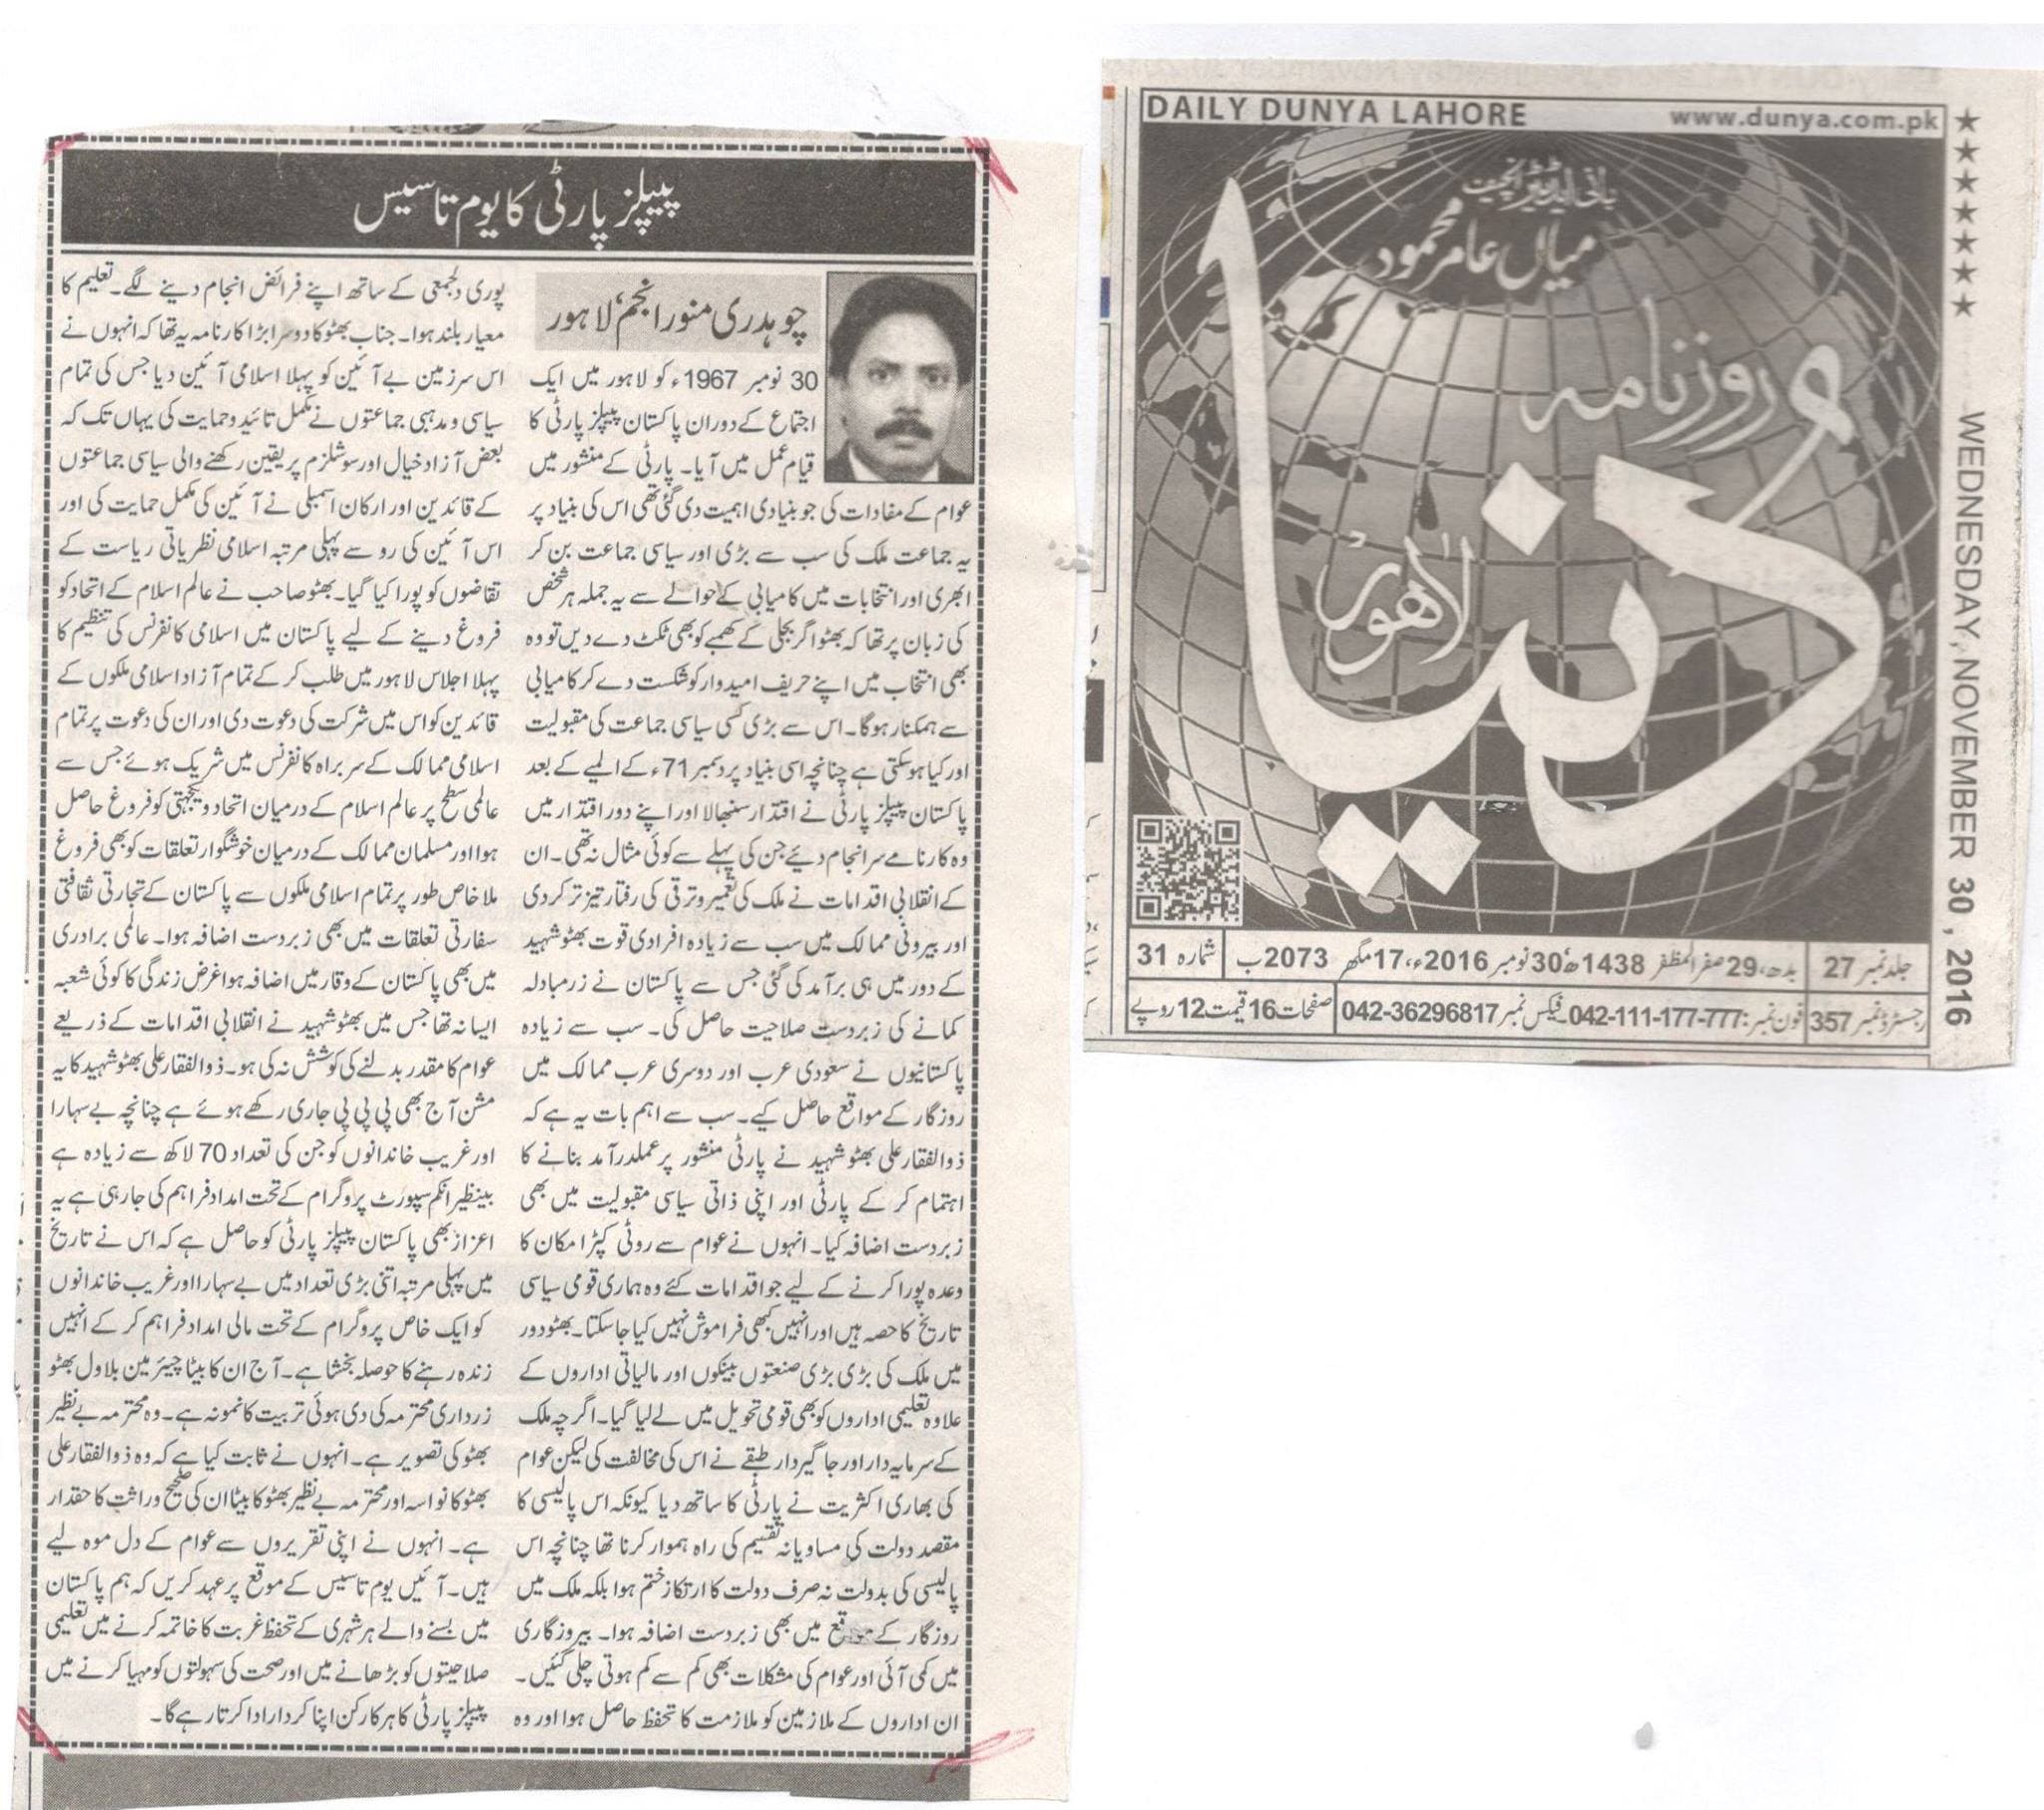 پیپلز پارٹی کا یوم تاسیس
چوہدری منور انجم، لاہور
30 نومبر 1967ء کو لاہور میں ایک
اجتماع کے دوران پاکستان پیپلز پارٹی کا
قیام عمل میں آیا۔ پارٹی کے منشور میں
عوام کے مفادات کی جو بنیادی اہمیت دی گئی تھی اس کی بنیاد پر
یہ جماعت ملک کی سب سے بڑی اور سیاسی جماعت بن کر
ابھری اور انتخابات میں کامیابی کے حوالے سے یہ جملہ ہر شخص
کی زبان پر تھا کہ بھٹو اگر بجلی کے کھمبے کو بھی ٹکٹ دے دیں تو وہ
بھی انتخاب میں اپنے حریف امیدوار کو شکست دے کر کامیابی
سے ہمکنار ہوگا۔ اس سے بڑی کسی سیاسی جماعت کی مقبولیت
اور کیا ہوسکتی ہے چنانچہ اسی بنیاد پر دسمبر 71ء کے المیے کے بعد
پاکستان پیپلز پارٹی نے اقتدار سنبھالا اور اپنے دور اقتدار میں
وہ کارنامے سرانجام دیئے جن کی پہلے سے کوئی مثال نہ تھی۔ ان
کے انقلابی اقدامات نے ملک کی تعمیر و ترقی کی رفتار تیز تر کردی
اور بیرونی ممالک میں سب سے زیادہ افرادی قوت بھٹو شہید
کے دور میں ہی برآمد کی گئی جس سے پاکستان نے زرمبادلہ
کمانے کی زبردست صلاحیت حاصل کی۔ سب سے زیادہ
پاکستانیوں نے سعودی عرب اور دوسری عرب ممالک میں
روزگار کے مواقع حاصل کیے۔ سب سے اہم بات یہ ہے کہ
ذوالفقار علی بھٹو شہید نے پارٹی منشور پر عملدرآمد بنانے کا
اہتمام کر کے پارٹی اور اپنی ذاتی سیاسی مقبولیت میں بھی
زبردست اضافہ کیا۔ انہوں نے عوام سے روٹی کپڑا مکان کا
وعدہ پورا کرنے کے لیے جو اقدامات کئے وہ ہماری قومی سیاسی
تاریخ کا حصہ ہیں اور انہیں کبھی فراموش نہیں کیا جاسکتا۔ بھٹو دور
میں ملک کی بڑی بڑی صنعتوں بینکوں اور مالیاتی اداروں کے
علاوہ تعلیمی اداروں کو بھی قومی تحویل میں لے لیا گیا۔ اگرچہ ملک
کے سرمایہ دار اور جاگیردار طبقے نے اس کی مخالفت کی لیکن عوام
کی بھاری اکثریت نے پارٹی کا ساتھ دیا کیونکہ اس پالیسی کا
مقصد دولت کی مساویانہ تقسیم کی راہ ہموار کرنا تھا چنانچہ اس
پالیسی کی بدولت نہ صرف دولت کا ارتکاز ختم ہوا بلکہ ملک میں
روزگار کے مواقع میں بھی زبردست اضافہ ہوا۔ بیروزگاری
میں کمی آئی اور عوام کی مشکلات بھی کم سے کم ہوتی چلی گئیں۔
ان اداروں کے ملازمین کو ملازمت کا تحفظ حاصل ہوا اور وہ
پوری دلجمعی کے ساتھ اپنے فرائض انجام دینے لگے۔ تعلیم کا
معیار بلند ہوا۔ جناب بھٹو کا دوسرا بڑا کارنامہ یہ تھا کہ انہوں نے
اس سرزمین بے آئین کو پہلا اسلامی آئین دیا جس کی تمام
سیاسی و مذہبی جماعتوں نے مکمل تائید و حمایت کی یہاں تک کہ
بعض آزاد خیال اور سوشلزم پر یقین رکھنے والی سیاسی جماعتوں
کے قائدین اور ارکان اسمبلی نے آئین کی مکمل حمایت کی اور
اس آئین کی رو سے پہلی مرتبہ اسلامی نظریاتی ریاست کے
تقاضوں کو پورا کیا گیا۔ بھٹو صاحب نے عالم اسلام کے اتحاد کو
فروغ دینے کے لیے پاکستان میں اسلامی کانفرنس کی تنظیم کا
پہلا اجلاس لاہور میں طلب کر کے تمام آزاد اسلامی ملکوں کے
قائدین کو اس میں شرکت کی دعوت دی اور ان کی دعوت پر تمام
اسلامی ممالک کے سربراہ کانفرنس میں شریک ہوئے جس سے
عالمی سطح پر عالم اسلام کے درمیان اتحاد و یکجہتی کو فروغ حاصل
ہوا اور مسلمان ممالک کے درمیان خوشگوار تعلقات کو بھی فروغ
ملا خاص طور پر تمام اسلامی ملکوں سے پاکستان کے تجارتی ثقافتی
سفارتی تعلقات میں بھی زبردست اضافہ ہوا۔ عالمی برادری
میں بھی پاکستان کے وقار میں اضافہ ہوا غرض زندگی کا کوئی شعبہ
ایسا نہ تھا جس میں بھٹو شہید نے انقلابی اقدامات کے ذریعے
عوام کا مقدر بدلنے کی کوشش نہ کی ہو۔ ذوالفقار علی بھٹو شہید کا یہ
مشن آج بھی پی پی پی جاری رکھے ہوئے ہے چنانچہ بے سہارا
اور غریب خاندانوں کو جن کی تعداد 70 لاکھ سے زیادہ ہے
بینظیر انکم سپورٹ پروگرام کے تحت امداد فراہم کی جارہی ہے یہ
اعزاز بھی پاکستان پیپلز پارٹی کو حاصل ہے کہ اس نے تاریخ
میں پہلی مرتبہ اتنی بڑی تعداد میں بے سہارا اور غریب خاندانوں
کو ایک خاص پروگرام کے تحت مالی امداد فراہم کر کے انہیں
زندہ رہنے کا حوصلہ بخشا ہے۔ آج ان کا بیٹا چیئرمین بلاول بھٹو
زرداری محترمہ کی دی ہوئی تربیت کا نمونہ ہے۔ وہ محترمہ بے نظیر
بھٹو کی تصویر ہے۔ انہوں نے ثابت کیا ہے کہ وہ ذوالفقار علی
بھٹو کا نواسہ اور محترمہ بے نظیر بھٹو کا بیٹا ان کی صحیح وراثت کا حقدار
ہے۔ انہوں نے اپنی تقریروں سے عوام کے دل موہ لیے
ہیں۔ آئیں یوم تاسیس کے موقع پر عہد کریں کہ ہم پاکستان
میں بسنے والے ہر شہری کے تحفظ غربت کا خاتمہ کرنے میں تعلیمی
صلاحیتوں کو بڑھانے میں اور صحت کی سہولتوں کو مہیا کرنے میں
پیپلز پارٹی کا ہر کارکن اپنا کردار ادا کرتا رہے گا۔
DAILY DUNYA LAHORE
www.dunya.com.pk
بانی ایڈیٹر انچیف
میاں عامر محمود
روزنامہ
دنیا
لاہور
WEDNESDAY, NOVEMBER 30, 2016
جلد نمبر 27
بدھ، 29 صفر المظفر 1438ھ، 30 نومبر 2016ء، 17 مگھر 2073ب
شمارہ 31
رجسٹرڈ نمبر 357
فون نمبر: 042-111-177-777۔ فیکس نمبر 042-36296817
صفحات 16 قیمت 12 روپے